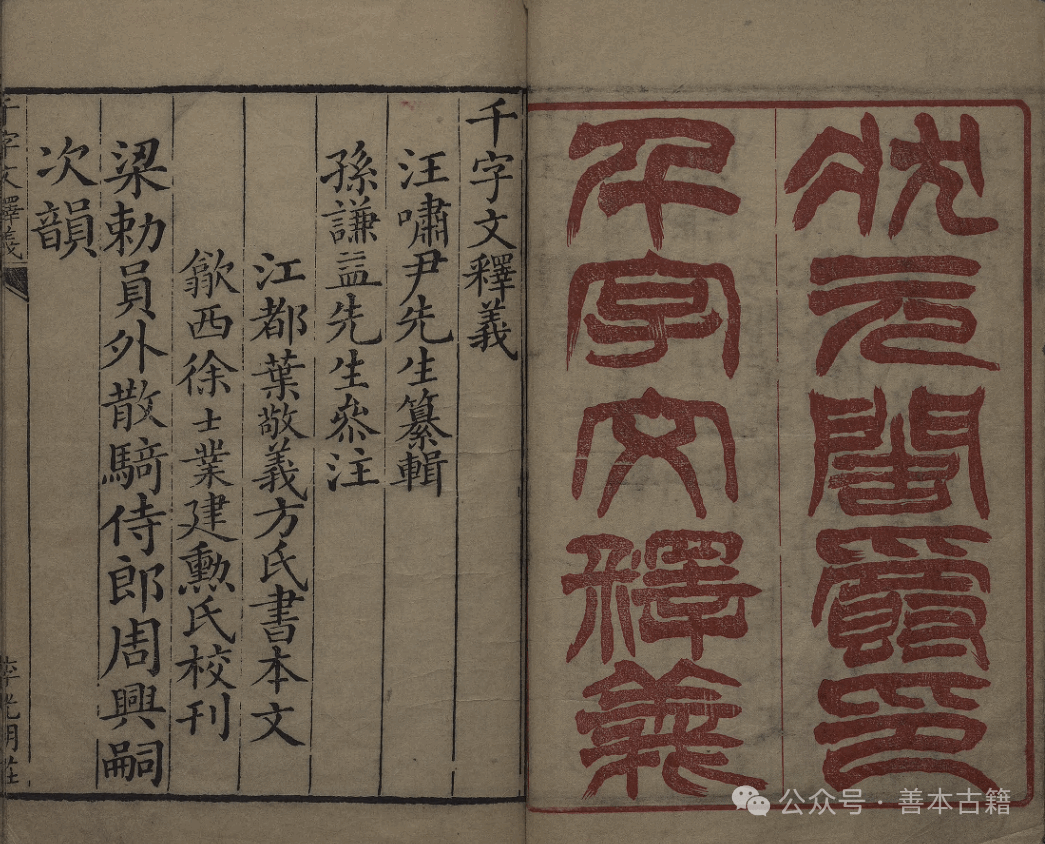 狀元閣爵印
千字文釋義
千字文釋義
汪嘯尹先生纂輯
孫謙益先生叅注
江都葉敬義方氏書本文
歙西徐士業建勳氏校刊
梁勅員外散騎侍郎周興嗣
次韻
千字文釋義
李光明莊
公众号·善本古籍